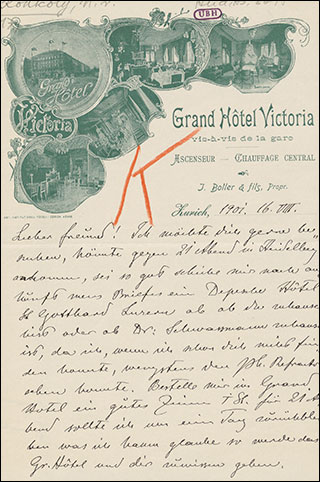 UBH
Grand Hôtel
Victoria
Grand Hôtel Victoria
vis-à-vis de la gare
Ascenseur — Chauffage central
J. Boller & fils, Propr.
Zuerich, 1901. 16. VIII.
Lieber Freund! Ich möchte dich gerne be
suchen, könnte gegen 21 Abend in Heidelberg
ankommen, sei so gut schreibe mir nach an
kunft meines Briefes ein Depesche Hôtel
St Gotthard Luzern ob du zuhause
bist oder ob Dr: Schwassmann zuhause
ist, da ich, wenn ich schon dich nicht fin
den konnte, wenigstens den Ph. Refractor
sehen konnte. Bestelle mir im Grand
Hotel ein gutes Zimmer für 21 A
bend sollte ich um ein Tag zurückblei
ben was ich kaum glaube so werde das
Gr. Hôtel und dir zuwissen geben.